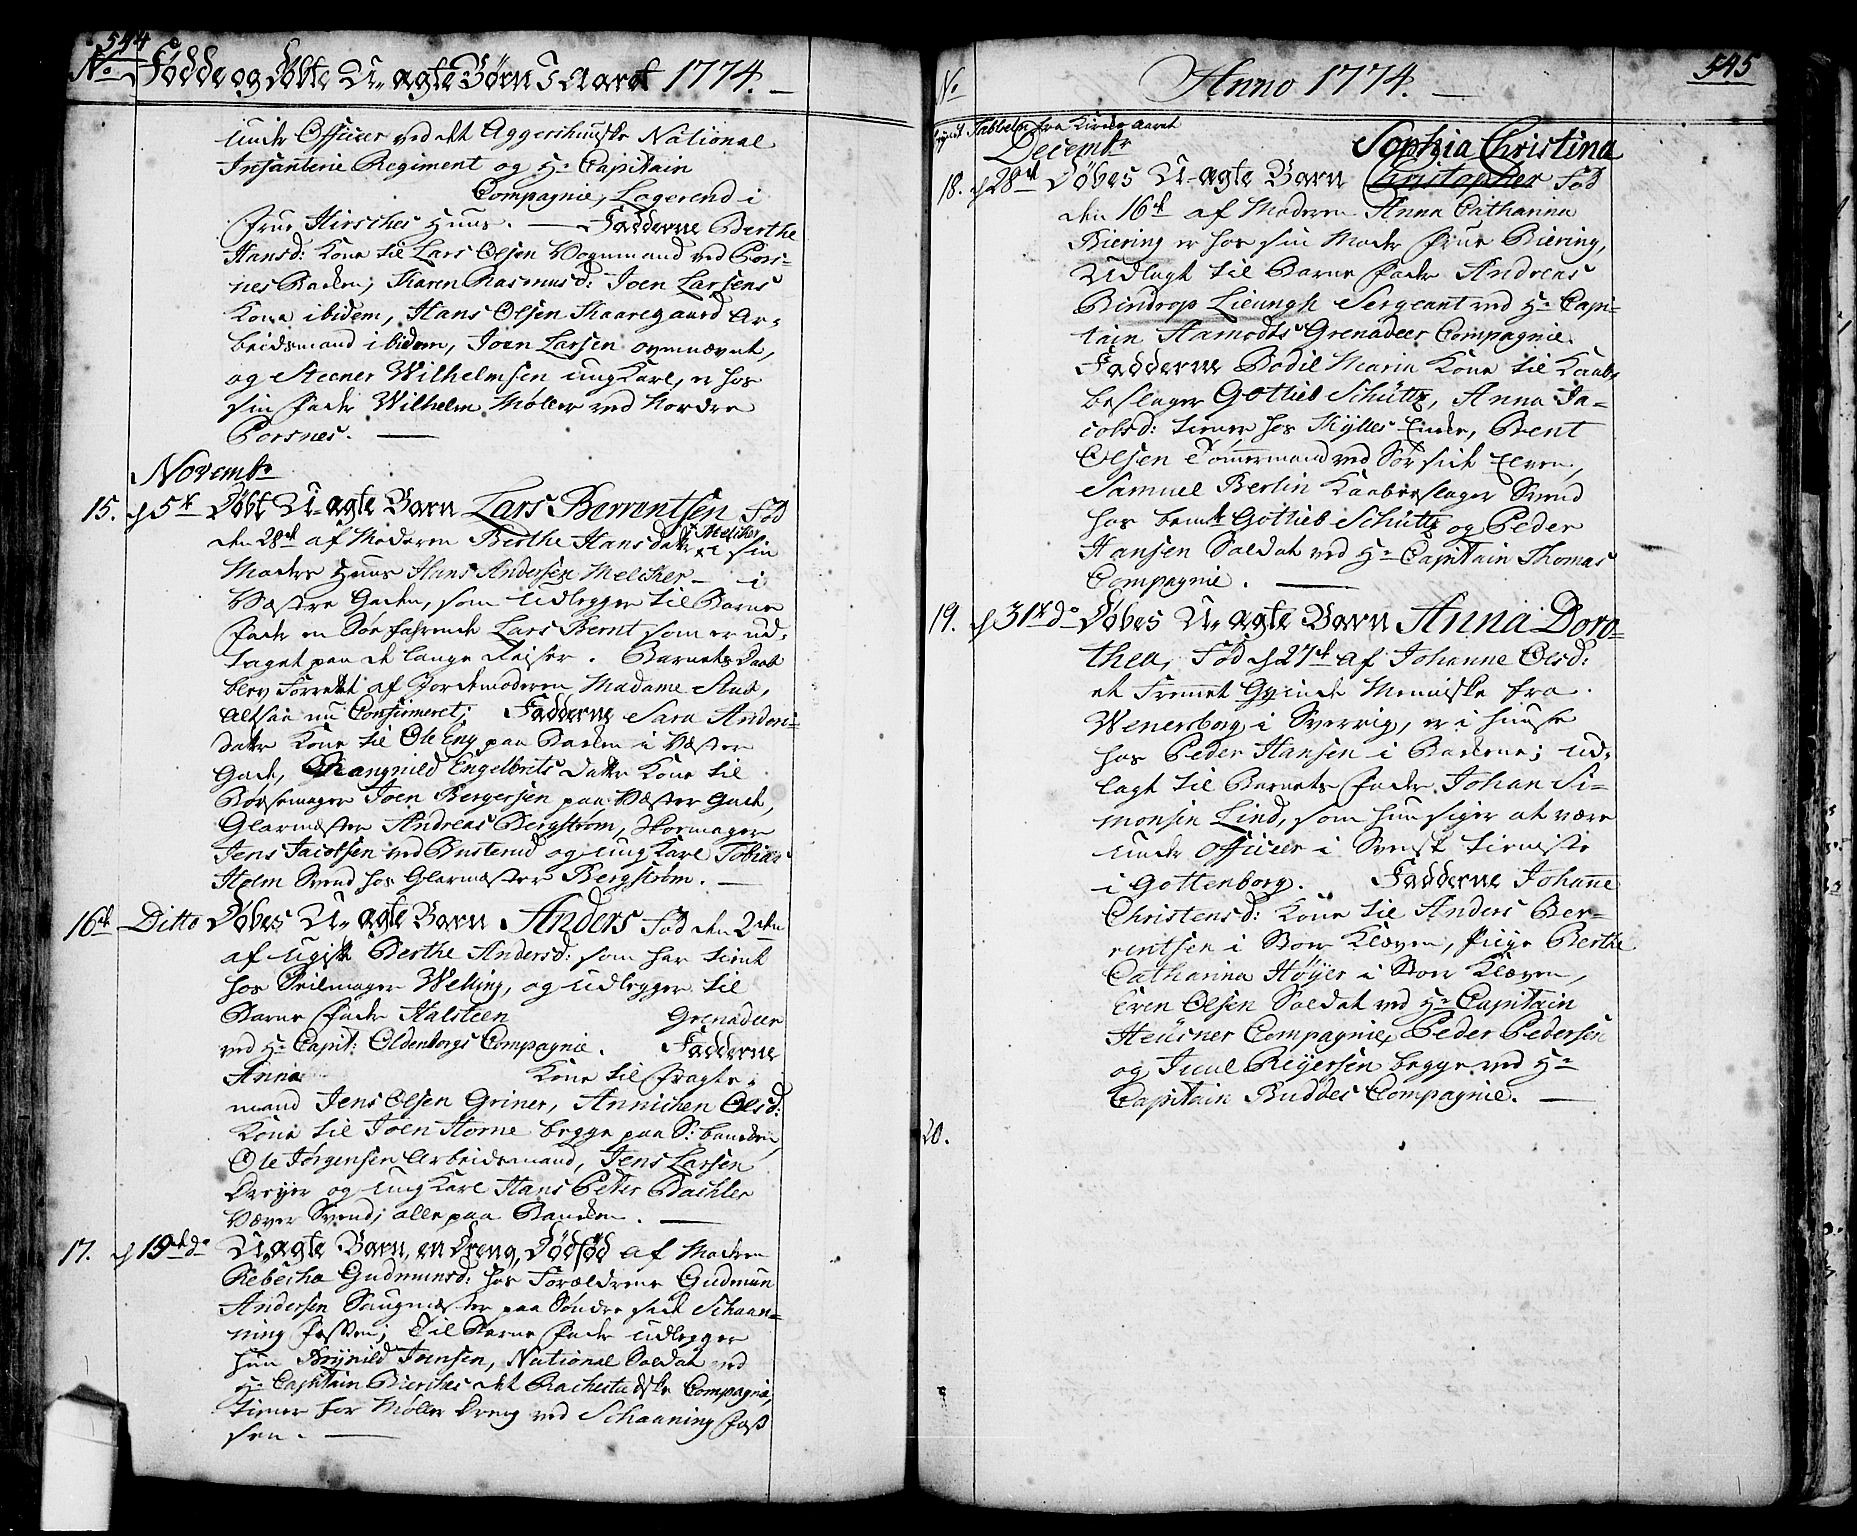 544
No Fødde og Døbte U-ægte Børn I Aaret 1774.
Under Officer ved det Aggershuuske National
Infanterie Regiment og Hr Capitain
Compagnie, Logerend i
Frue Hirsches Huus. — Fadderne Berthe
Hansd: Kone til Lars Olsen Vognmand ved Pors-
nes Backen; Karen Rasmusd: Joen Larsens
Kone ibidem, Hans Olsen Skaaregaard Ar-
beidsmand ibidem, Joen Larsen ovennævnt,
og Steener Wilhelmsen ung Karl, er hos
sin Fader Wilhelm Møller ved Nordre
Porsnes. —
Novembr
15. d 5te Døbt U-ægte Barn Lars Berrentsen Fød
den 28de af Moderen Berthe Hansdatter Melcher i sin
Moders Huus Hans Andersen Melcher — i
Væstre Gaden, som Udlegger til Barne
Fader en Søe fahrende Lars Bernt som er ud-
taget paa de lange Reiser. Barnets Daab
blev Forrettet af Jordemoderen Madame
Altsaa nu Confirmeret; Fadderne Sara Anders-
datter Kone til Ole Eng paa Backen i Væster
Gade, Rangnild Engelbrits datter Kone til
Børsemager Joen Bergersen paa Væster Gade,
Glarmæster Andreas Bergstrøm, Skoemager
Jens Jacobsen ved Busterud og ung Karl Tobias
Holm Svend hos Glarmæster Bergstrøm. —
16de Ditto Døbes U-ægte Barn Anders Fød den 2den
af ugift Berthe Andersd: som har tient
hos Seilmager Welling, og udlegger til
Barne Fader Halsteen Grenadeer
ved Hr Capit: Oldenborgs Compagnie. Fadderne
Anna Kone til Fragte-
mand Jens Olsen Griner, Annichen Olsd:
Kone til Joen Horne begge paa S: baneden,
Ole Jørgensen Arbeidsmand, Jens Larsen
Dreyer og ung Karl Hans Peter Bachler
Væver Svend; alle paa Banden. —
17. d 19de do U-ægte Barn, en Dreng, Dødfød af Moderen
Rebecha Gudmunsd: hos Forældrene Gudmun
Andersen Saugmæster paa Søndre side Schaan-
ning Fossen; Til Barne Fader udlegger
hun Brynild Jensen, National Soldat ved
Hr Capitain Bierches det Rachestadske Compagnie,
tiener for Møller Dreng ved Schaaning Foss
sen. —
545
No Anno 1774. —
Tabbeln fra Kirke Aaret
Decembr Sophia Christina
18. d 28de Døbes U-ægte Barn Christopher Fød
den 16de af Moderen Anna Catharina
Biering er hos sin Moder Frue Biering,
Udlagt til Barne Fader Andreas
Bindrop Lieungh Sergeant ved Hr Capi-
tain Hamodts Grenadeer Compagnie.
Fadderne Bodil Maria Kone til Kaab-
berslager Gottlieb Schütz, Anna Ja-
cobsd: tiener hos Skyttes Encke, Bent
Olsen Tømmermand ved Sør side Elven,
Samuel Berlin Kaaberslager Svend
hos bemte Gottlieb Schütz og Peder
Hansen Soldat ved Hr Capitain Thomas
Compagnie. —
19. d 31te do Døbes U-ægte Barn Anna Doro-
thea, Fød d 27de af Johanne Olsd:
et Fremmet Qvinde Menniske fra
Wenersborg i Sverrig, er i huuse
hos Peder Hansen i Backene; ud-
lagt til Barnets Fader Johan Si-
monsen Lind, som hun siger at være
Under Officeer i Svensk tieniste
i Gottenborg. Fadderne Johanne
Christensd: Kone til Anders Ber-
rentsen i Store Kløven, Pige Berthe
Catharina Høyer i Store Kløven,
Even Olsen Soldat ved Hr Capitain
Heusner Compagnie, Peder Pedersen
og Juul Reyersen begge ved Hr
Capitain Buddes Compagnie. —
20.